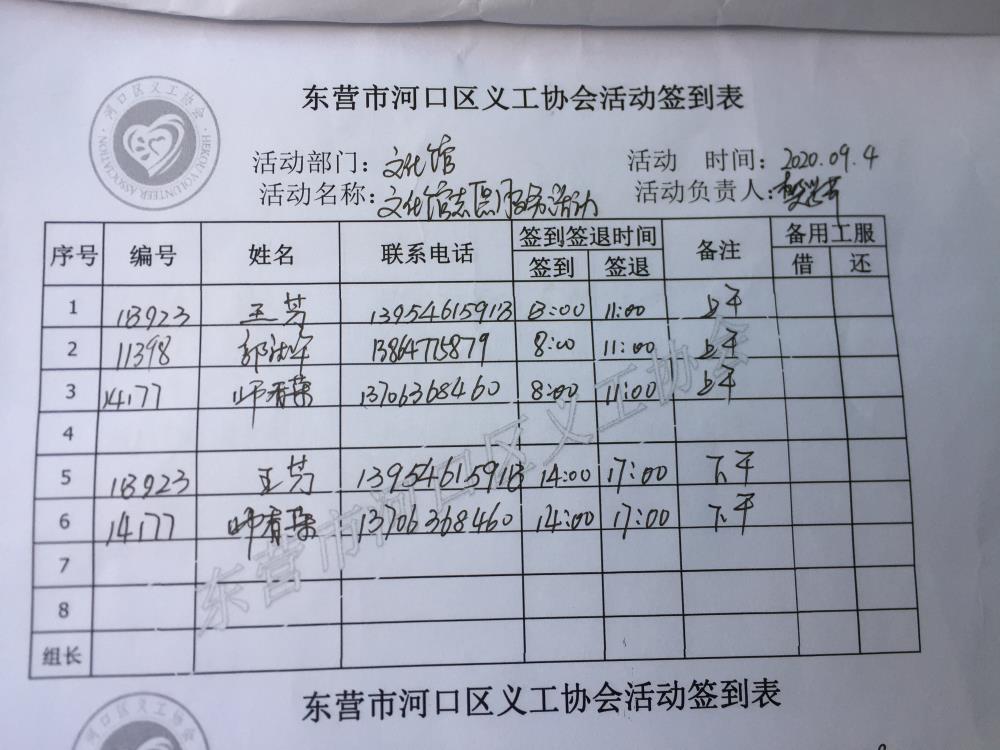 东营市河口区义工协会活动签到表
河口区义工协会
HEKOU VOLUNTEER ASSOCIATION
活动部门：文化馆 活动 时间：2020.09.4
活动名称：文化馆志愿服务活动 活动负责人：
序号 编号 姓名 联系电话 签到签退时间 备注 备用工服
签到 签退 借 还
1 18923 王芳 13954615918 8:00 11:00 上午
2 11398 郭 13864775879 8:00 11:00 上午
3 14177 师有荣 13706368460 8:00 11:00 上午
4
5 18923 王芳 13954615918 14:00 17:00 下午
6 14177 师有荣 13706368460 14:00 17:00 下午
7
8
组长
东营市河口区义工协会
东营市河口区义工协会活动签到表
河口区义工协会